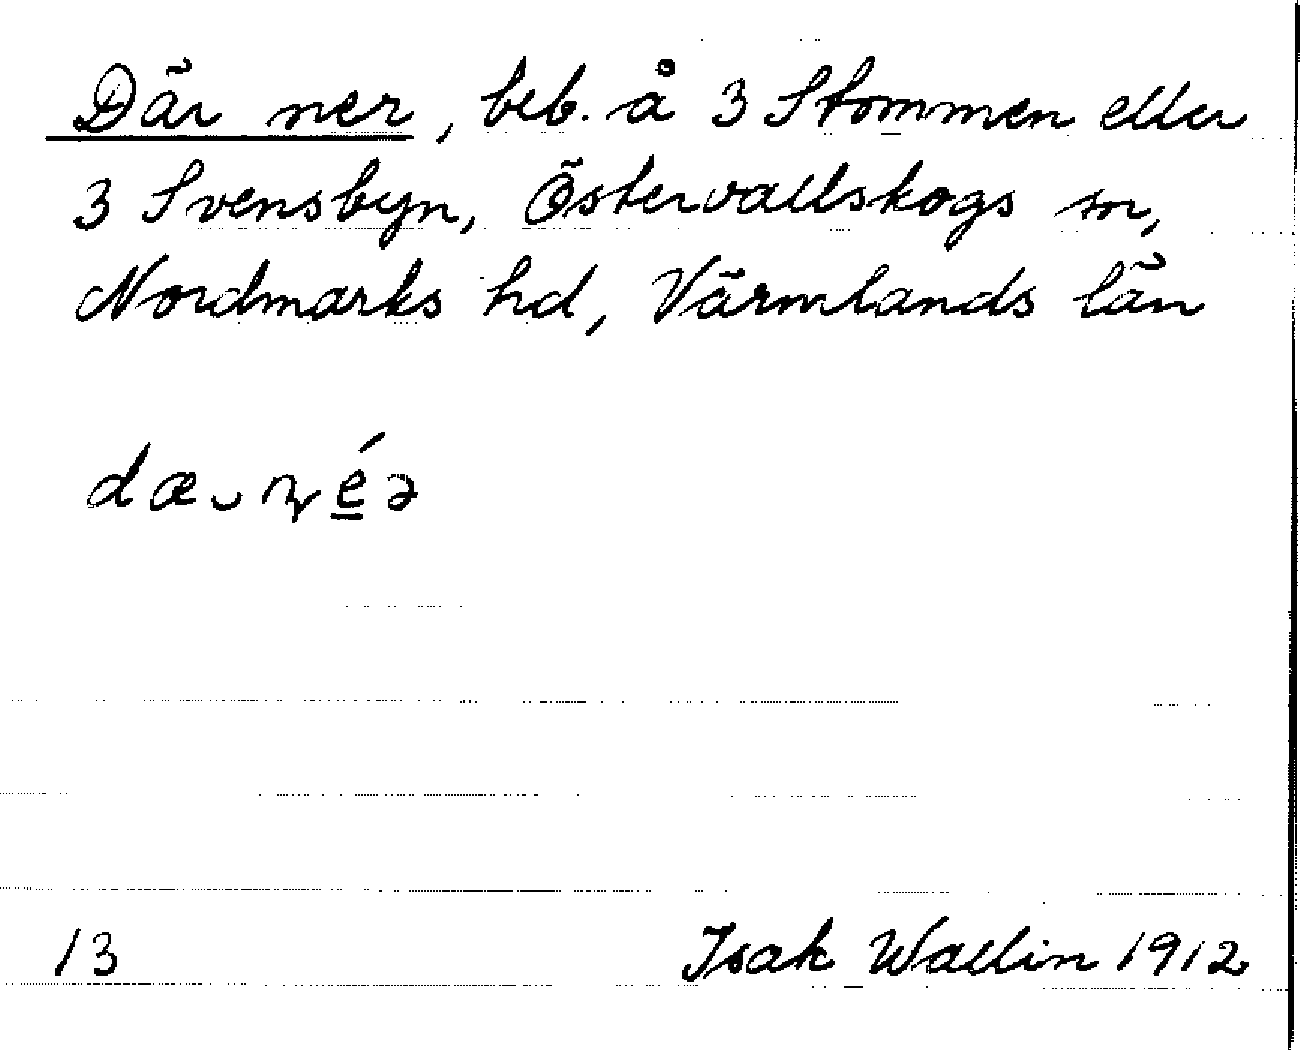 Där ner, beb. å 3 Stommen eller
3 Svensbyn, Östervallskogs sn,
Nordmarks hd, Värmlands län
dæ‿ɳé̲ə
13 Isak Wallin 1912